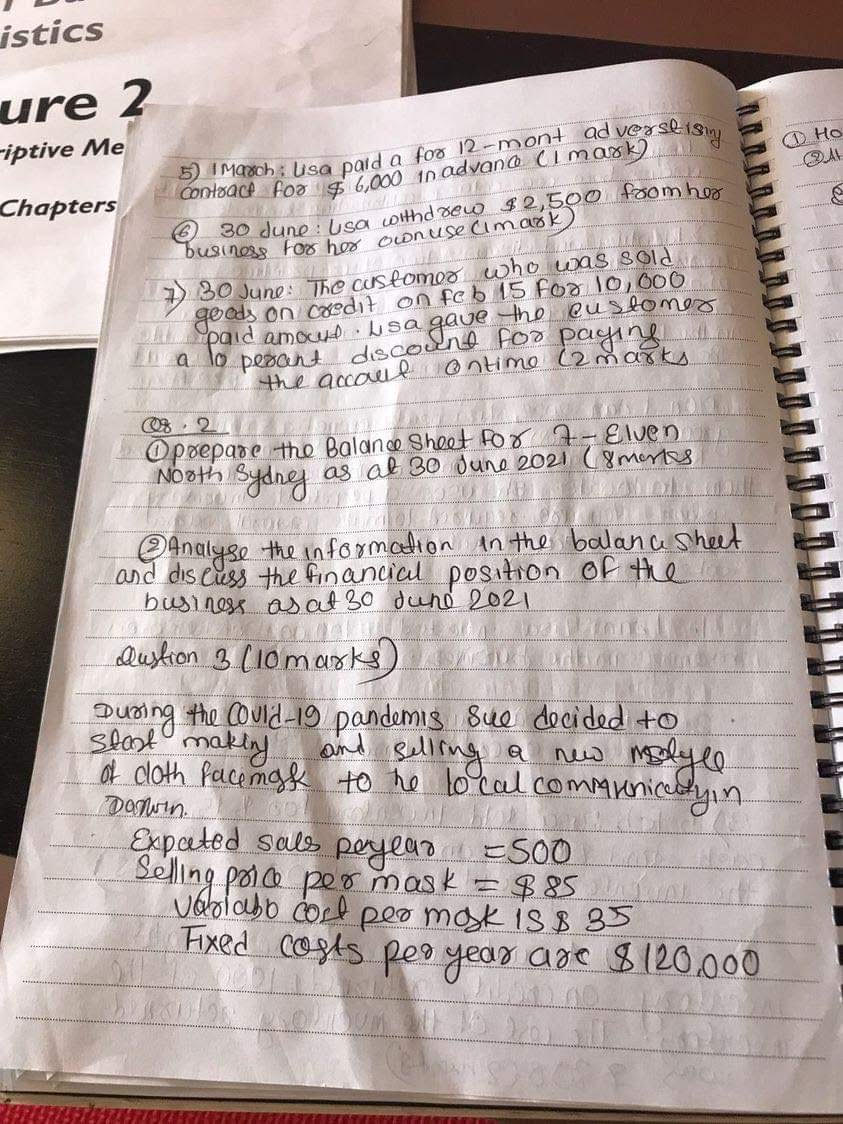 istics
ure 2
riptive Me
Chapters
5) 1 March: Lisa paid a for 12-mont adverstismy
contract for $ 6,000 in advana (1 mark)
⑥ 30 June: Lisa withdrew $2,500 from her
business for her own use (1 mark)
7) 30 June: The customer who was sold
goods on credit on feb 15 for 10,000
paid amout. Lisa gave the customer
a 10 persant discound for paying
the accaut ontime (2 marks
Qs. 2
① prepare the Balance Sheet for 7-Elven
North Sydney as at 30 June 2021 (8 marks
② Analyse the information in the balana sheet
and discuss the financial position of the
business as at 30 June 2021
Qustion 3 (10 marks)
During the Covid-19 pandemis Sue decided to
start making and selling a new
of cloth facemask to he local in
Darwin.
Expated sales peryear =500
Selling price per mask = $85
Variabb cost per mask is $ 35
Fixed costs per year are $120,000
① Ho
②